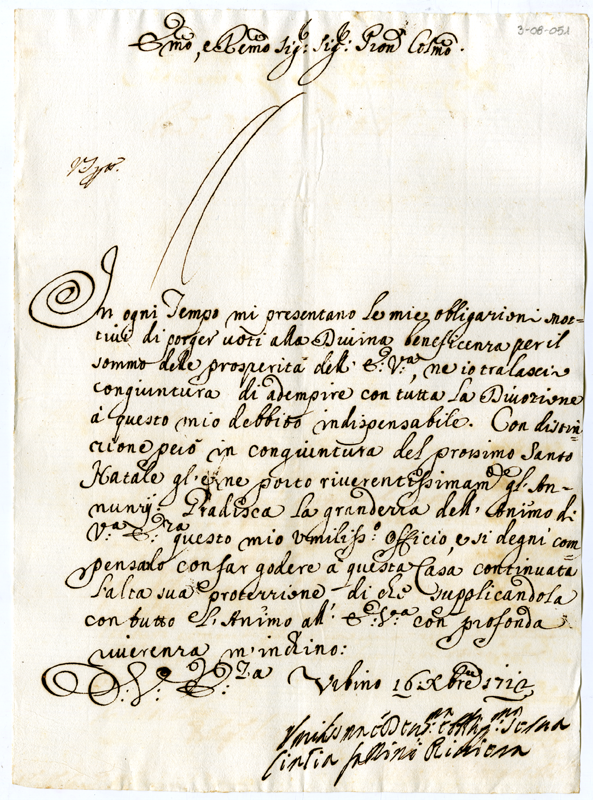 3-08-051
Em̃o, e R̃emo Sig.r Sig.r Pron.e Colmo.
In ogni Tempo mi presentano le mie obligazioni mot=
tivi di porger voti alla Divina beneficenza per il
sommo delle prosperità dell' E.V.a, ne io tralascio
congiuntura di adempire con tutta la Divozione
à questo mio debbito indispensabile. Con distin=
zione però in congiuntura del prossimo Santo
Natale gl'e ne porto riverentissimam.te gl'An-
nunzij. Gradisca la grandezza dell'Animo di
V.a E.za questo mio umiliss.o officio, e si degni com
pensarlo con far godere à questa Casa continuata
l'alta sua protezzione di che supplicandola
con tutto l'Animo all' E.V.a con profonda
riverenza m'inchino:
D. V. E.za
Urbino 16 Xbre 171
Cintia